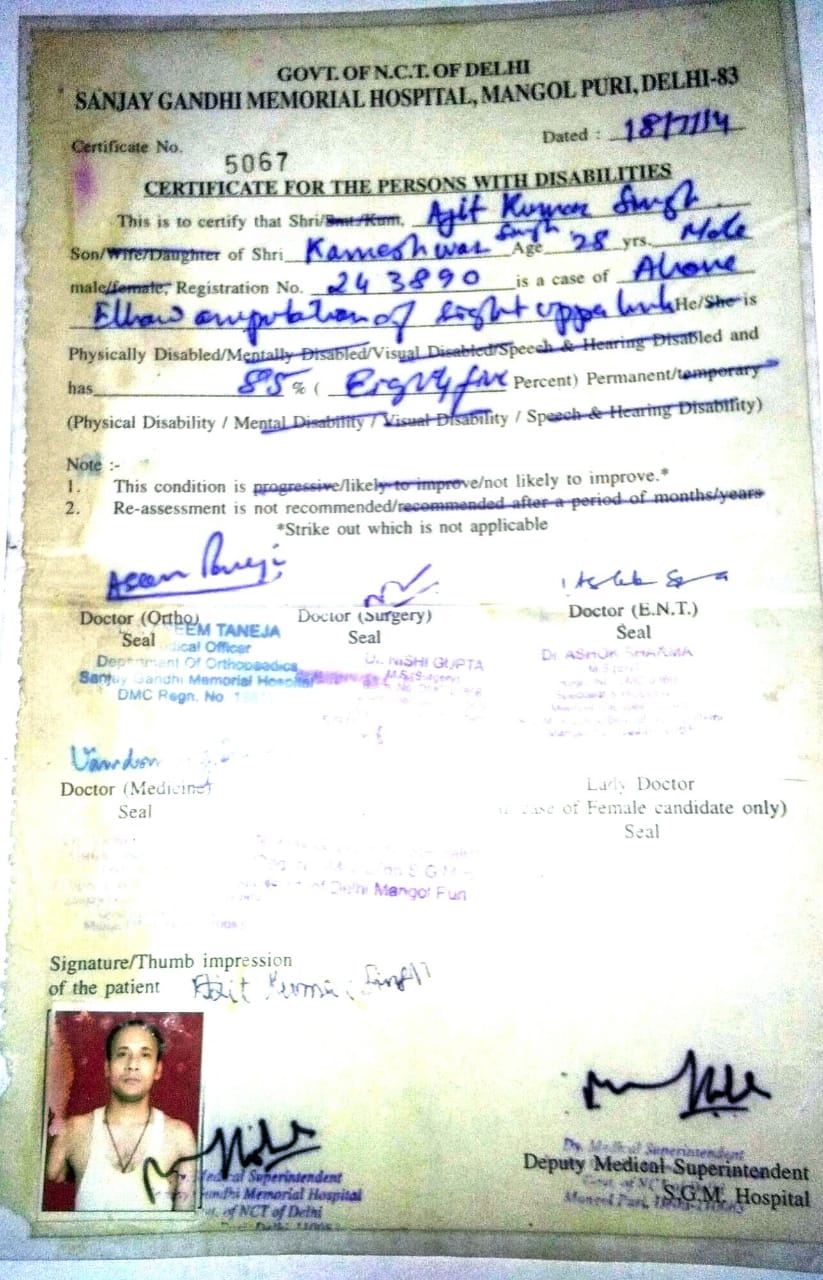 GOVT. OF N.C.T. OF DELHI
SANJAY GANDHI MEMORIAL HOSPITAL, MANGOL PURI, DELHI-83
Certificate No. 5067 Dated : 18/7/14
CERTIFICATE FOR THE PERSONS WITH DISABILITIES
This is to certify that Shri/Smt/Kum. Ajit Kumar Singh
Son/Wife/Daughter of Shri Kameshwar Singh Age 28 yrs. Male
male/female, Registration No. 243890 is a case of Above
Elbow amputation of right upper limb He/She is
Physically Disabled/Mentally Disabled/Visual Disabled/Speech & Hearing Disabled and
has 85 % ( Eighty five Percent) Permanent/temporary
(Physical Disability / Mental Disability / Visual Disability / Speech & Hearing Disability)
Note :-
1. This condition is progressive/likely to improve/not likely to improve.*
2. Re-assessment is not recommended/recommended after a period of months/years
*Strike out which is not applicable
Doctor (Ortho) Doctor (Surgery) Doctor (E.N.T.)
Seal Seal Seal
EEM TANEJA
dical Officer
Department Of Orthopaedics
Sanjay Gandhi Memorial Hospital
DMC Regn. No
Dr. NISHI GUPTA
M.S.(Surgery)
Dr ASHOK SHARMA
Doctor (Medicine) Lady Doctor
Seal case of Female candidate only)
Seal
of Delhi Mangol Puri
Signature/Thumb impression
of the patient Ajit Kumar Singh
Medical Superintendent
Gandhi Memorial Hospital
of NCT of Delhi
Dy. Medical Superintendent
Deputy Medical Superintendent
Govt. of NCT of
S.G.M. Hospital